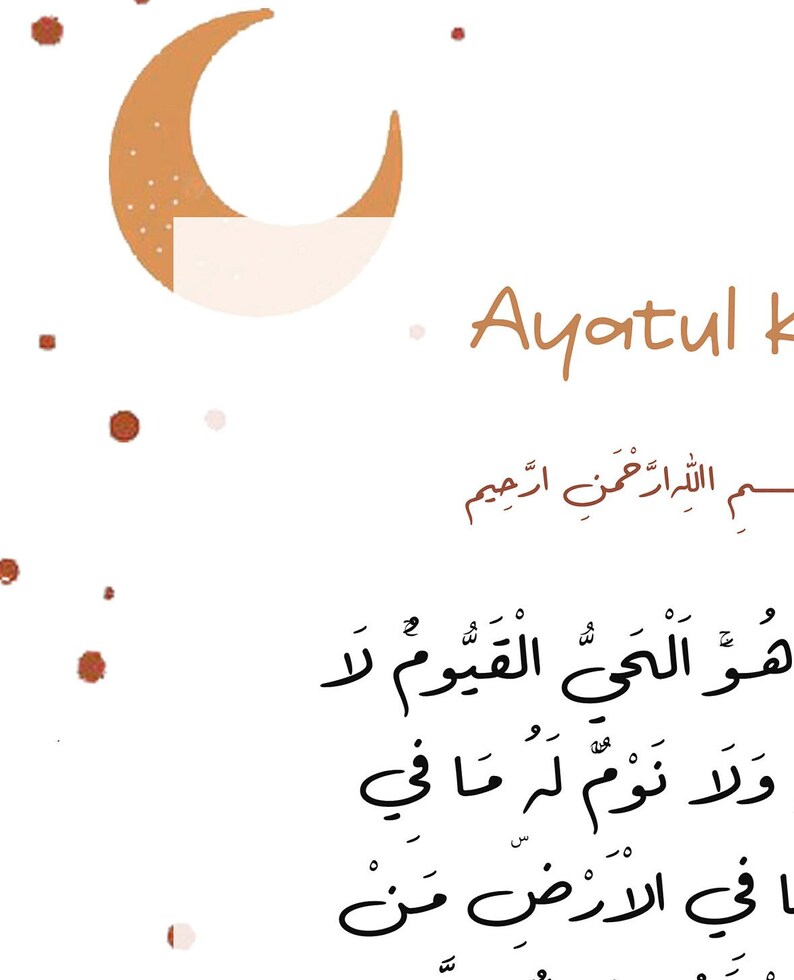 Ayatul K
ـسمِ اللّٰهِ ارَّحْمَنِ ارَّحِيم
هُوَۚ اَلْحَيُّ الْقَيُّومُۚ لَا
وَلَا نَوْمٌۜ لَهُ مَا فيِ
ا فيِ الاَرْضِۜ مَنْ